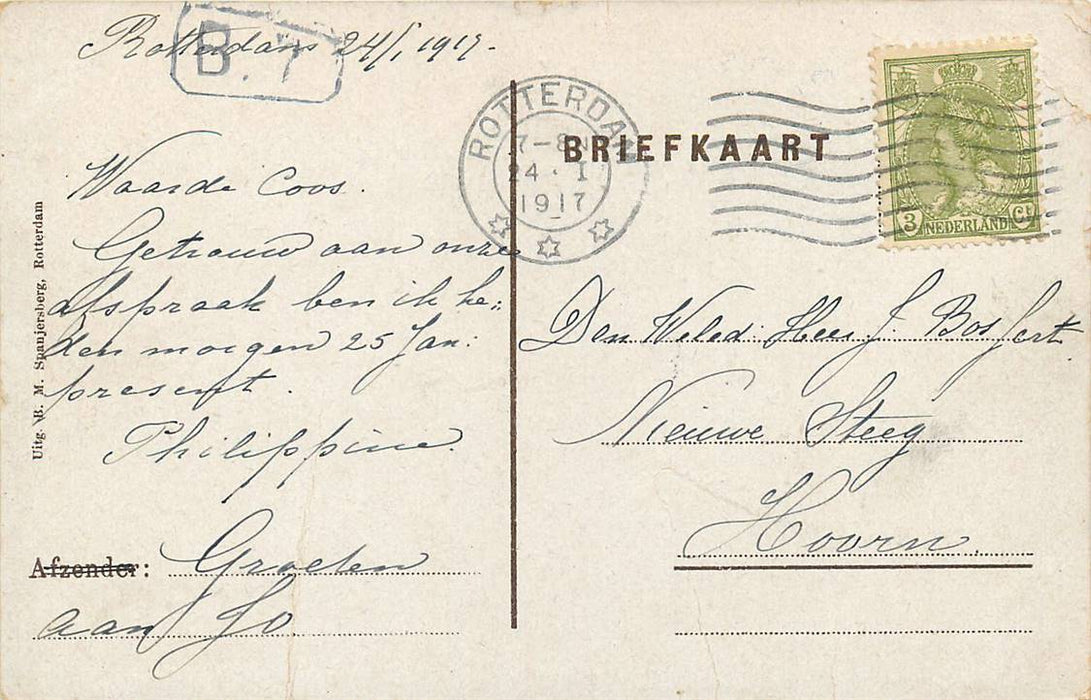 Rotterdam 24/1 1917.
B. 1
Waarde Coos.
Getrouw aan onze
afspraak ben ik he„
den morgen 25 Jan:
present.
Philippine.
Afzender: Groeten
aan Jo
Uitg. B. M. Spanjersberg, Rotterdam
ROTTERDAM
7-8 N
24 . 1
1917
BRIEFKAART
3 NEDERLAND Ct
Den Weled: Heer J. Bos Jert
Nieuwe Steeg
Hoorn.